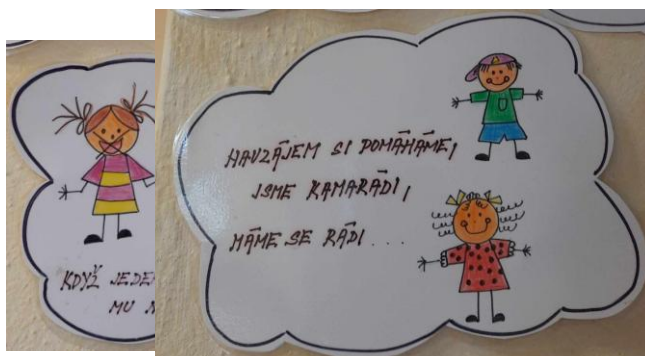 KDYŽ JEDE
MU
NAVZÁJEM SI POMÁHÁME,
JSME KAMARÁDI,
MÁME SE RÁDI...